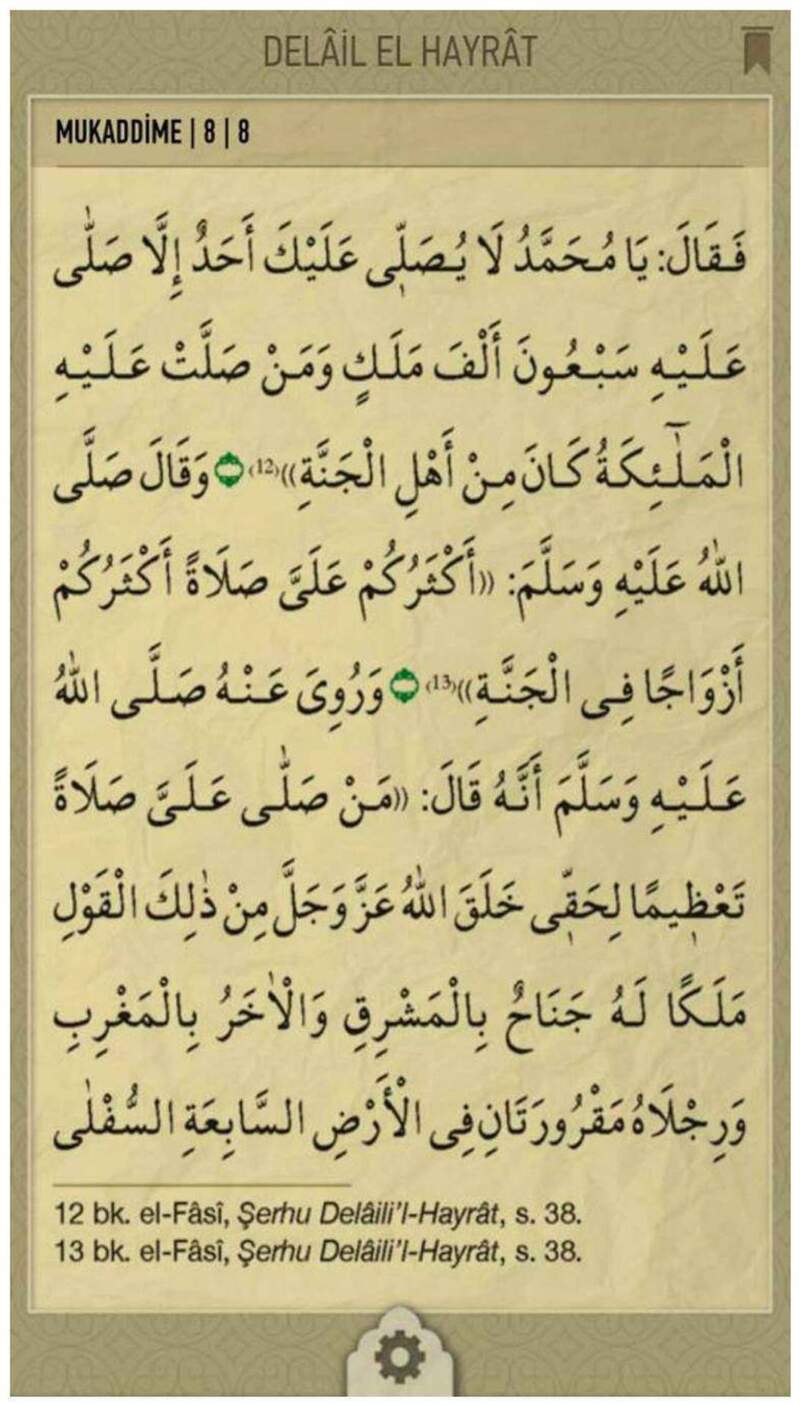 DELÂİL EL HAYRÂT
MUKADDİME | 8 | 8
فَقَالَ: يَا مُحَمَّدُ لَا يُصَلّٖى عَلَيْكَ أَحَدٌ إِلَّا صَلّٰى
عَلَيْهِ سَبْعُونَ أَلْفَ مَلَكٍ وَمَنْ صَلَّتْ عَلَيْهِ
الْمَلٰٓئِكَةُ كَانَ مِنْ أَهْلِ الْجَنَّةِ))(12) وَقَالَ صَلَّى
اللهُ عَلَيْهِ وَسَلَّمَ: ((أَكْثَرُكُمْ عَلَيَّ صَلَاةً أَكْثَرُكُمْ
أَزْوَاجًا فِى الْجَنَّةِ))(13) وَرُوِىَ عَنْهُ صَلَّى اللهُ
عَلَيْهِ وَسَلَّمَ أَنَّهُ قَالَ: ((مَنْ صَلّٰى عَلَىَّ صَلَاةً
تَعْظٖيمًا لِحَقّٖى خَلَقَ اللهُ عَزَّ وَجَلَّ مِنْ ذٰلِكَ الْقَوْلِ
مَلَكًا لَهُ جَنَاحٌ بِالْمَشْرِقِ وَالْاٰخَرُ بِالْمَغْرِبِ
وَرِجْلَاهُ مَقْرُورَتَانِ فِى الْأَرْضِ السَّابِعَةِ السُّفْلٰى
12 bk. el-Fâsî, Şerhu Delâili’l-Hayrât, s. 38.
13 bk. el-Fâsî, Şerhu Delâili’l-Hayrât, s. 38.